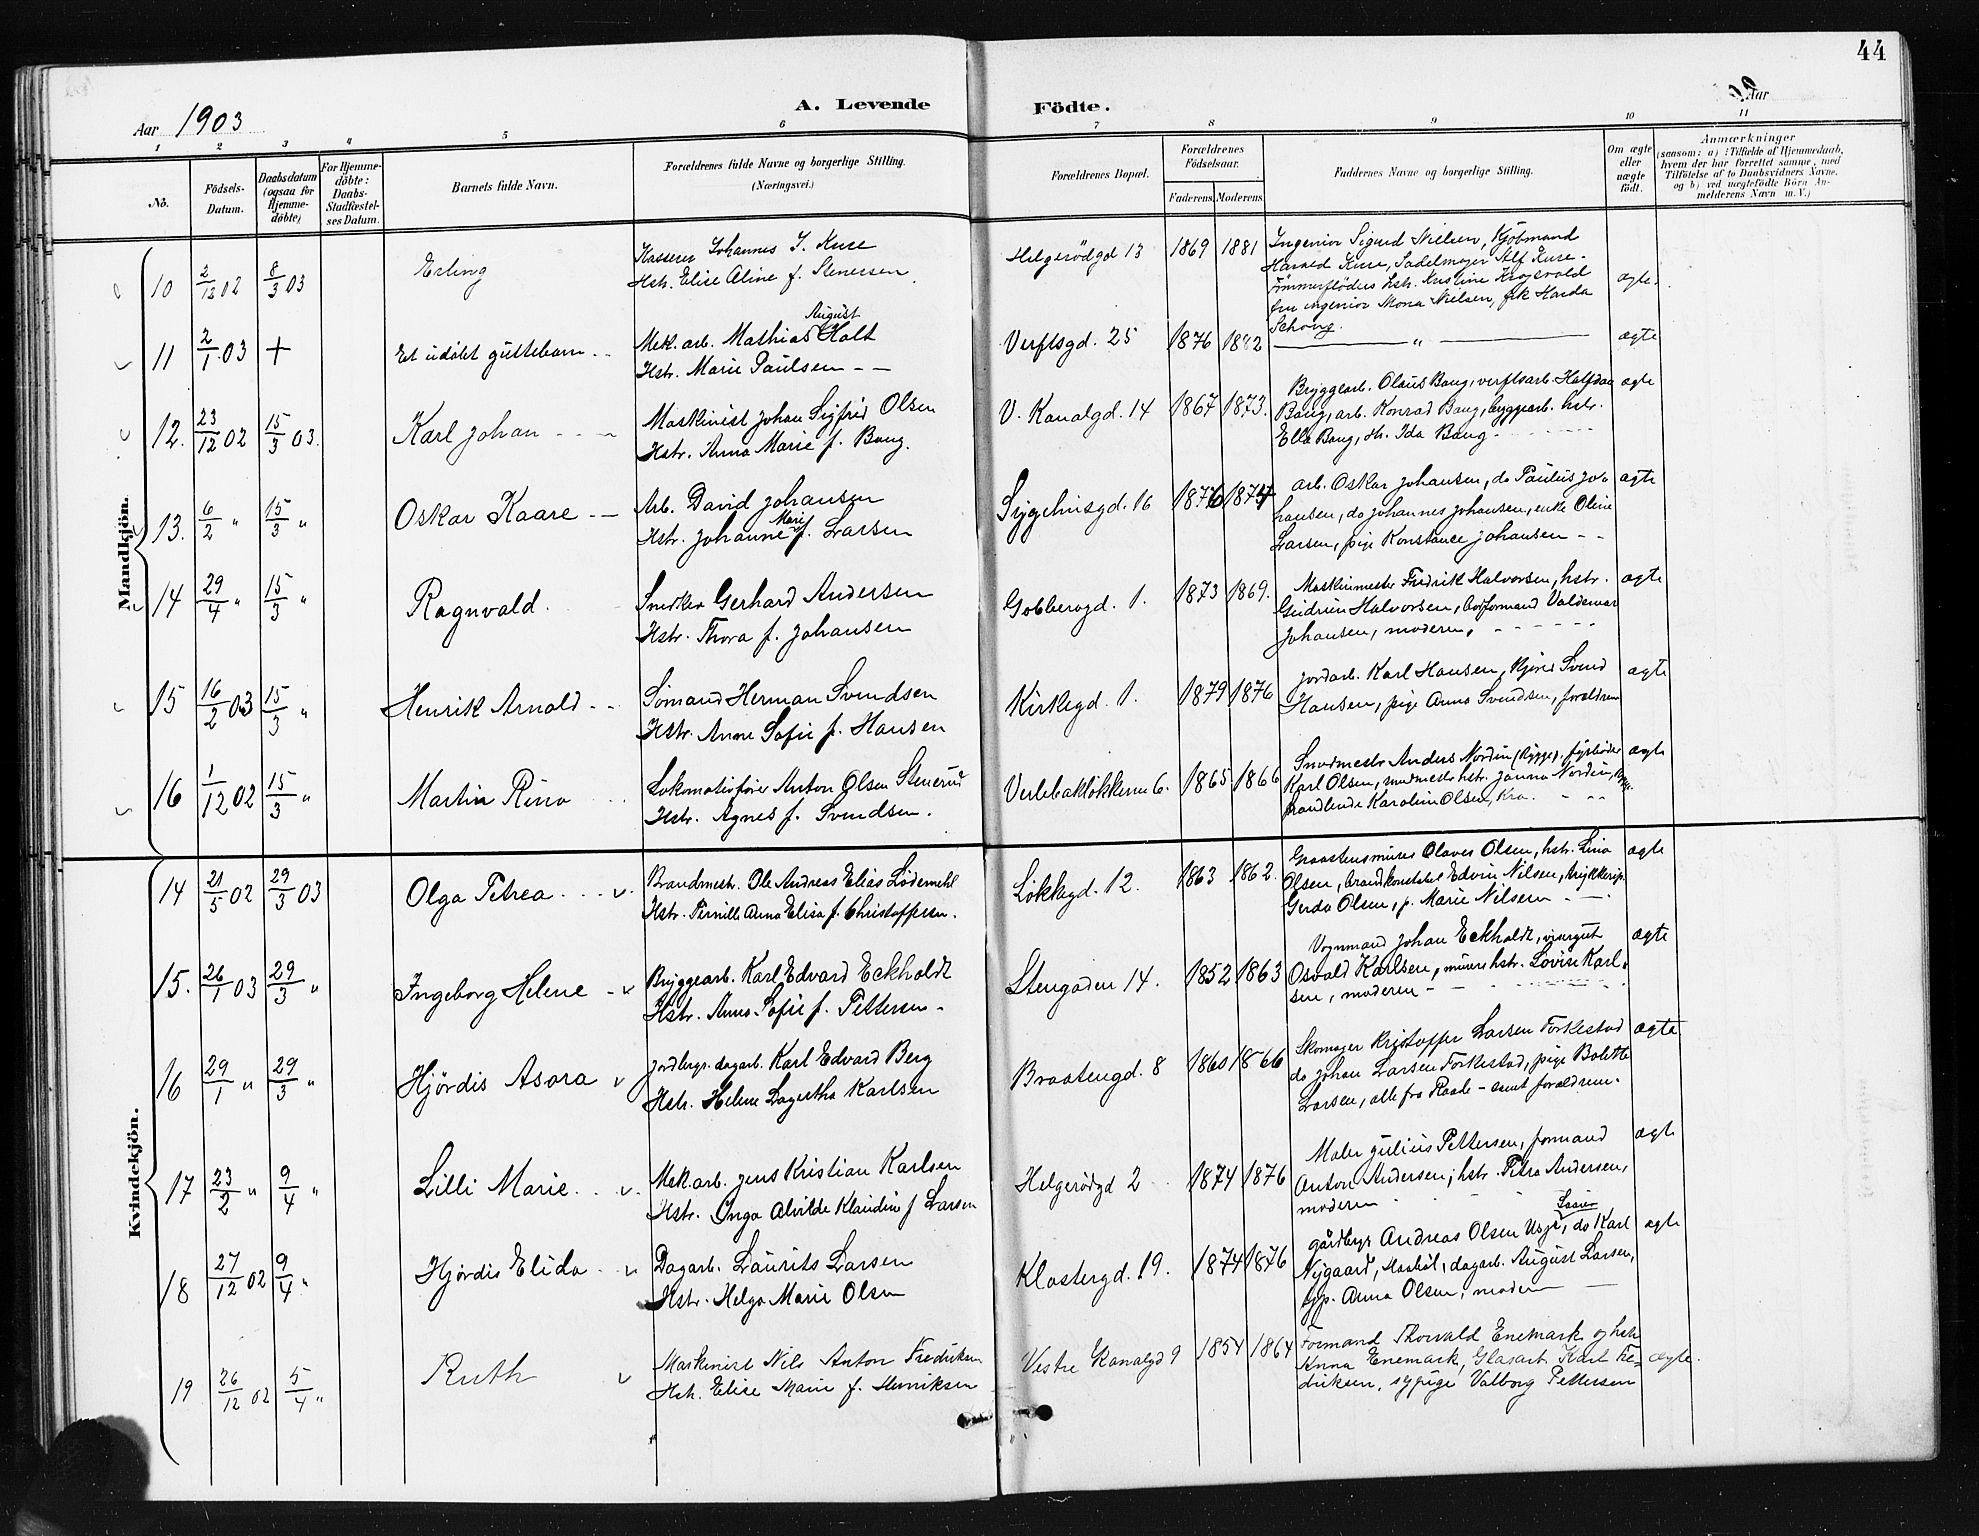 44
Aar 1903
A. Levende Födte.
Aar
1 2 3 4 5 6 7 8 9 10 11
No.
Födsels-Datum.
Daabsdatum (ogsaa for Hjemme-döbte)
For Hjemme-döbte: Daabs-Stadfæstel-ses Datum.
Barnets fulde Navn.
Forældrenes fulde Navne og borgerlige Stilling.
(Næringsvei.)
Forældrenes Bopæl.
Forældrenes Födselsaar.
Faderens. Moderens.
Faddernes Navne og borgerlige Stilling.
Om ægte eller uægte födt.
Anmærkninger
(saasom: a) i Tilfælde af Hjemmedaab,
hvem der har forrettet samme, med
Tilföielse af to Daabsvidners Navne.
og b) ved uægtefödte Börn An-
melderens Navn m. V.)
Mandkjön.
10 2/12 02 8/3 03 Erling
Kasserer Johannes J. Kure
Hstr. Elise Aline f. Stenersen
Helgerödgd 13 1869 1881
Ingeniör Sigurd Nielsen, Kjöbmand
Harald Kure, Sadelmager Alf Kure
Tömmerflöders hstr. Kristine Krogsvold
fru ingeniör Mona Nielsen, frk Harda
Schong. ægte.
11 2/1 03 + Et udöbt guttebarn
Mek. arb. Mathias August Holt
Hstr. Marie Paulsen
Verftsgd. 25 1876 1882 " ægte
12. 23/12 02 15/3 03. Karl Johan
Maskinist Johan Sigfrid Olsen
Hstr. Anna Marie f. Bang.
V. Kanalgd. 14 1867 1873.
Bryggearb. Olaus Bang, verftsarb. Halfdan
Bang, arb. Konrad Bang, byggearb. hstr.
Ella Bang, th. Ida Bang ægte
13. 6/2 " 15/3 " Oskar Kaare
Arb. David Johansen
Hstr. Johanne Marie f. Larsen
Sygehusgd. 16 1876 1874
arb. Oskar Johansen, do Paulus Jo-
hansen, do Johannes Johansen, enke Oline
Larsen, pige Konstance Johansen ægte
14 29/4 " 15/3 " Ragnvald.
Snedker Gerhard Andersen
Hstr. Thora f. Johansen
Gobberogd. 1. 1873 1869.
Maskinmester Fredrik Halvorsen, hstr.
Gudrun Halvorsen, Valdemar
Johansen, moderen, ægte
15 16/2 03 15/3 " Henrik Arnold
Sömand Herman Svendsen
Hstr. Anne Sofie f. Hansen
Kirkegd. 1. 1879 1876
Jordarb. Karl Hansen, Svend
Hansen, pige Anna Svendsen, forældrene ægte
16 1/12 02 15/3 " Martin Rino
Lokomotivförer Anton Olsen Stenerud
Hstr. Agnes f. Svendsen.
Verlebaklökkerne 6. 1865 1866
Anders Nordin (Rygge), fyrböder
Karl Olsen, hstr. Janna Nordin,
handlende Karoline Olsen, Kra. ægte
Kvindekjön.
14 21/5 02 29/3 03 Olga Petrea
Brandmestr. Ole Andreas Elias Lödemel
Hstr. Pernille Anna Elisa f. Christoffersen.
Lökkegd. 12. 1863 1862.
Graastensmurer Olaves Olsen, hstr. Lina
Olsen, brandkonstabel Edvin Nilsen,
Gerda Olsen, p. Marie Nilsen ægte
15. 26/1 03 29/3 " Ingeborg Helene
Bryggearb. Karl Edvard Eckholdt
Hstr. Anna Sofie f. Pettersen
Stengaden 14. 1852 1863
Vognmand Johan Eckholdt, visergut
Osvald Karlsen, murers hstr. Lovise Karl-
sen, moderen ægte
16 29/1 " 29/3 " Hjördis Asora
Jordbrgs. dagarb. Karl Edvard Berg
Hstr. Helene Lagertha Karlsen
Braatengd. 8 1860 1866
Skomager Kristoffer Larsen Forkestad
do Johan Larsen Forkestad, pige Bolette
Larsen, alle fra Raade - samt forældrene. ægte
17 23/2 " 9/4 " Lilli Marie
Mek. arb. Jens Kristian Karlsen
Hstr. Inga Alvilde Klaudine f Larsen
Helgerödgd 2 1874 1876
Maler Julius Pettersen, formand
Anton Andersen, hstr. Petra Andersen,
moderen ægte
18 27/12 02 9/4 " Hjördis Elida
Dagarb. Laurits Larsen
Hstr. Helga Marie Olsen
Klostergd. 19. 1874 1876
gårdbrgr Andreas Olsen, do Karl
Nygaard, dagarb. August Larsen,
Anna Olsen, moderen ægte
19 26/12 02 5/4 " Ruth
Maskinist Nils Anton Fredriksen
Hstr. Elise Marie f. Henriksen
Vestre Kanalgd 9 1854 1864
Formand Thorvald Enemark og hstr
Anna Enemark, Glasarb. Karl Fre-
driksen, sypige Valborg Pettersen ægte.